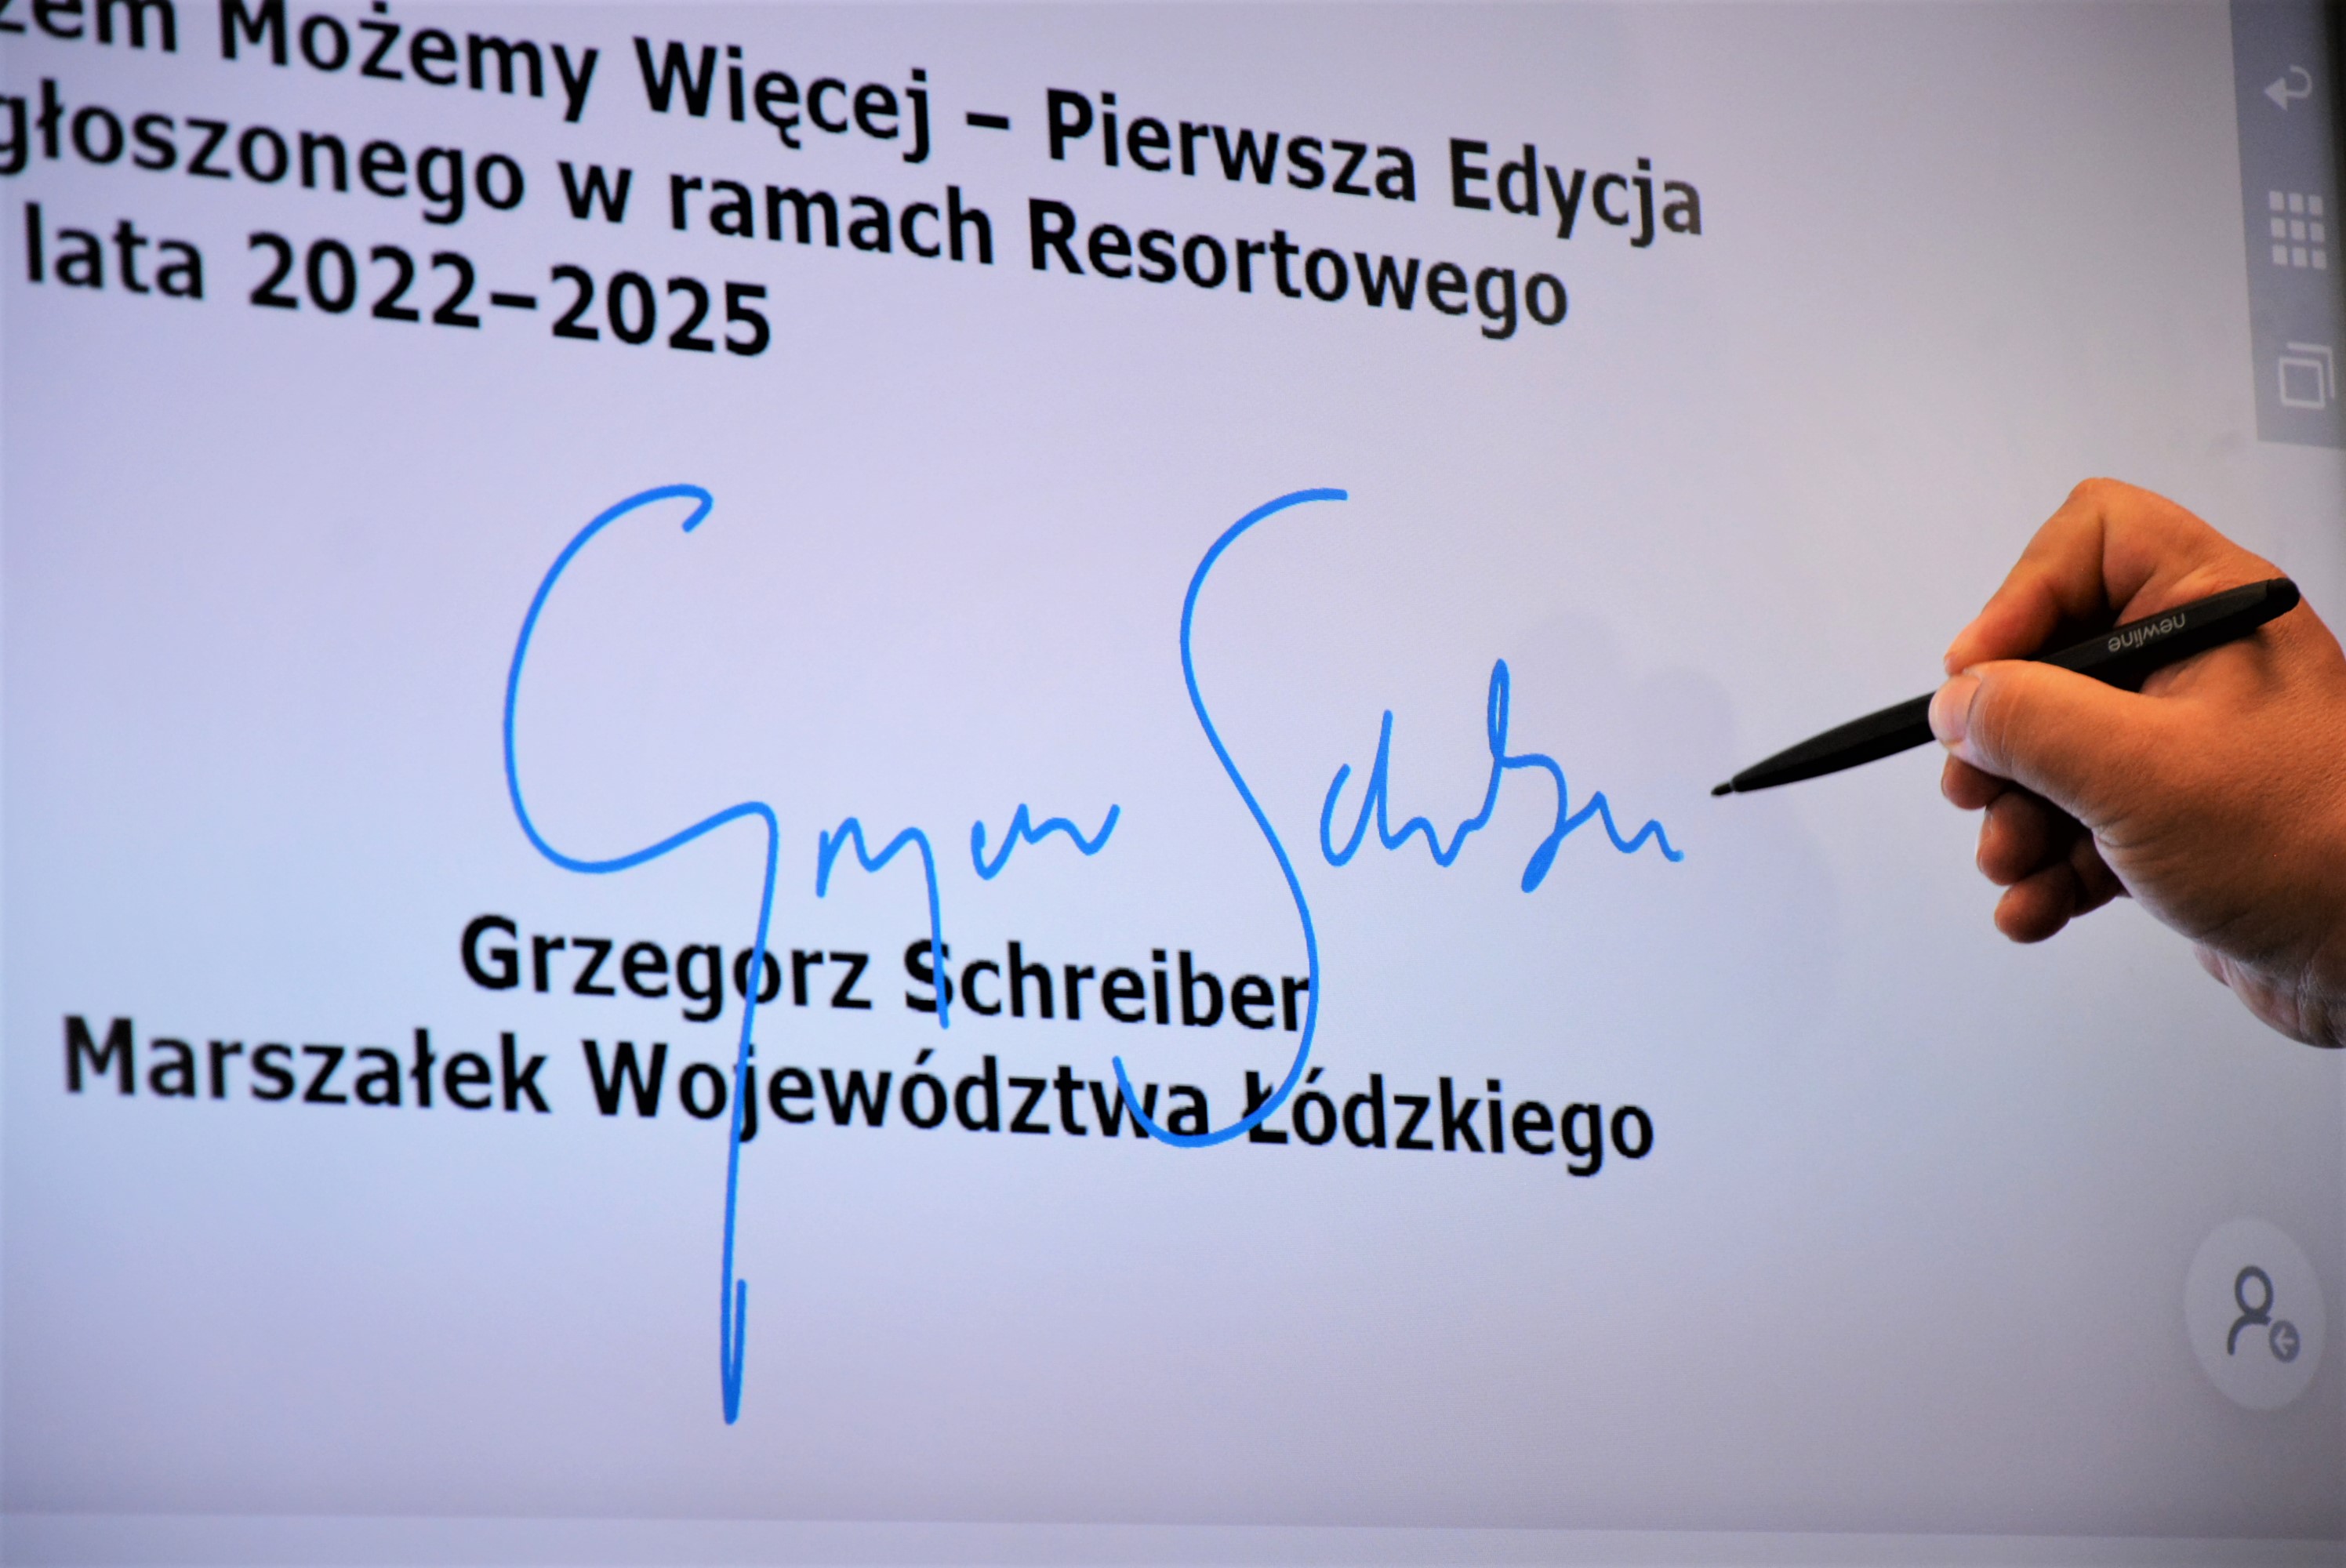 zem Możemy Więcej – Pierwsza Edycja
głoszonego w ramach Resortowego
lata 2022–2025
Grzegorz Schreiber
newline
Grzegorz Schreiber
Marszałek Województwa Łódzkiego